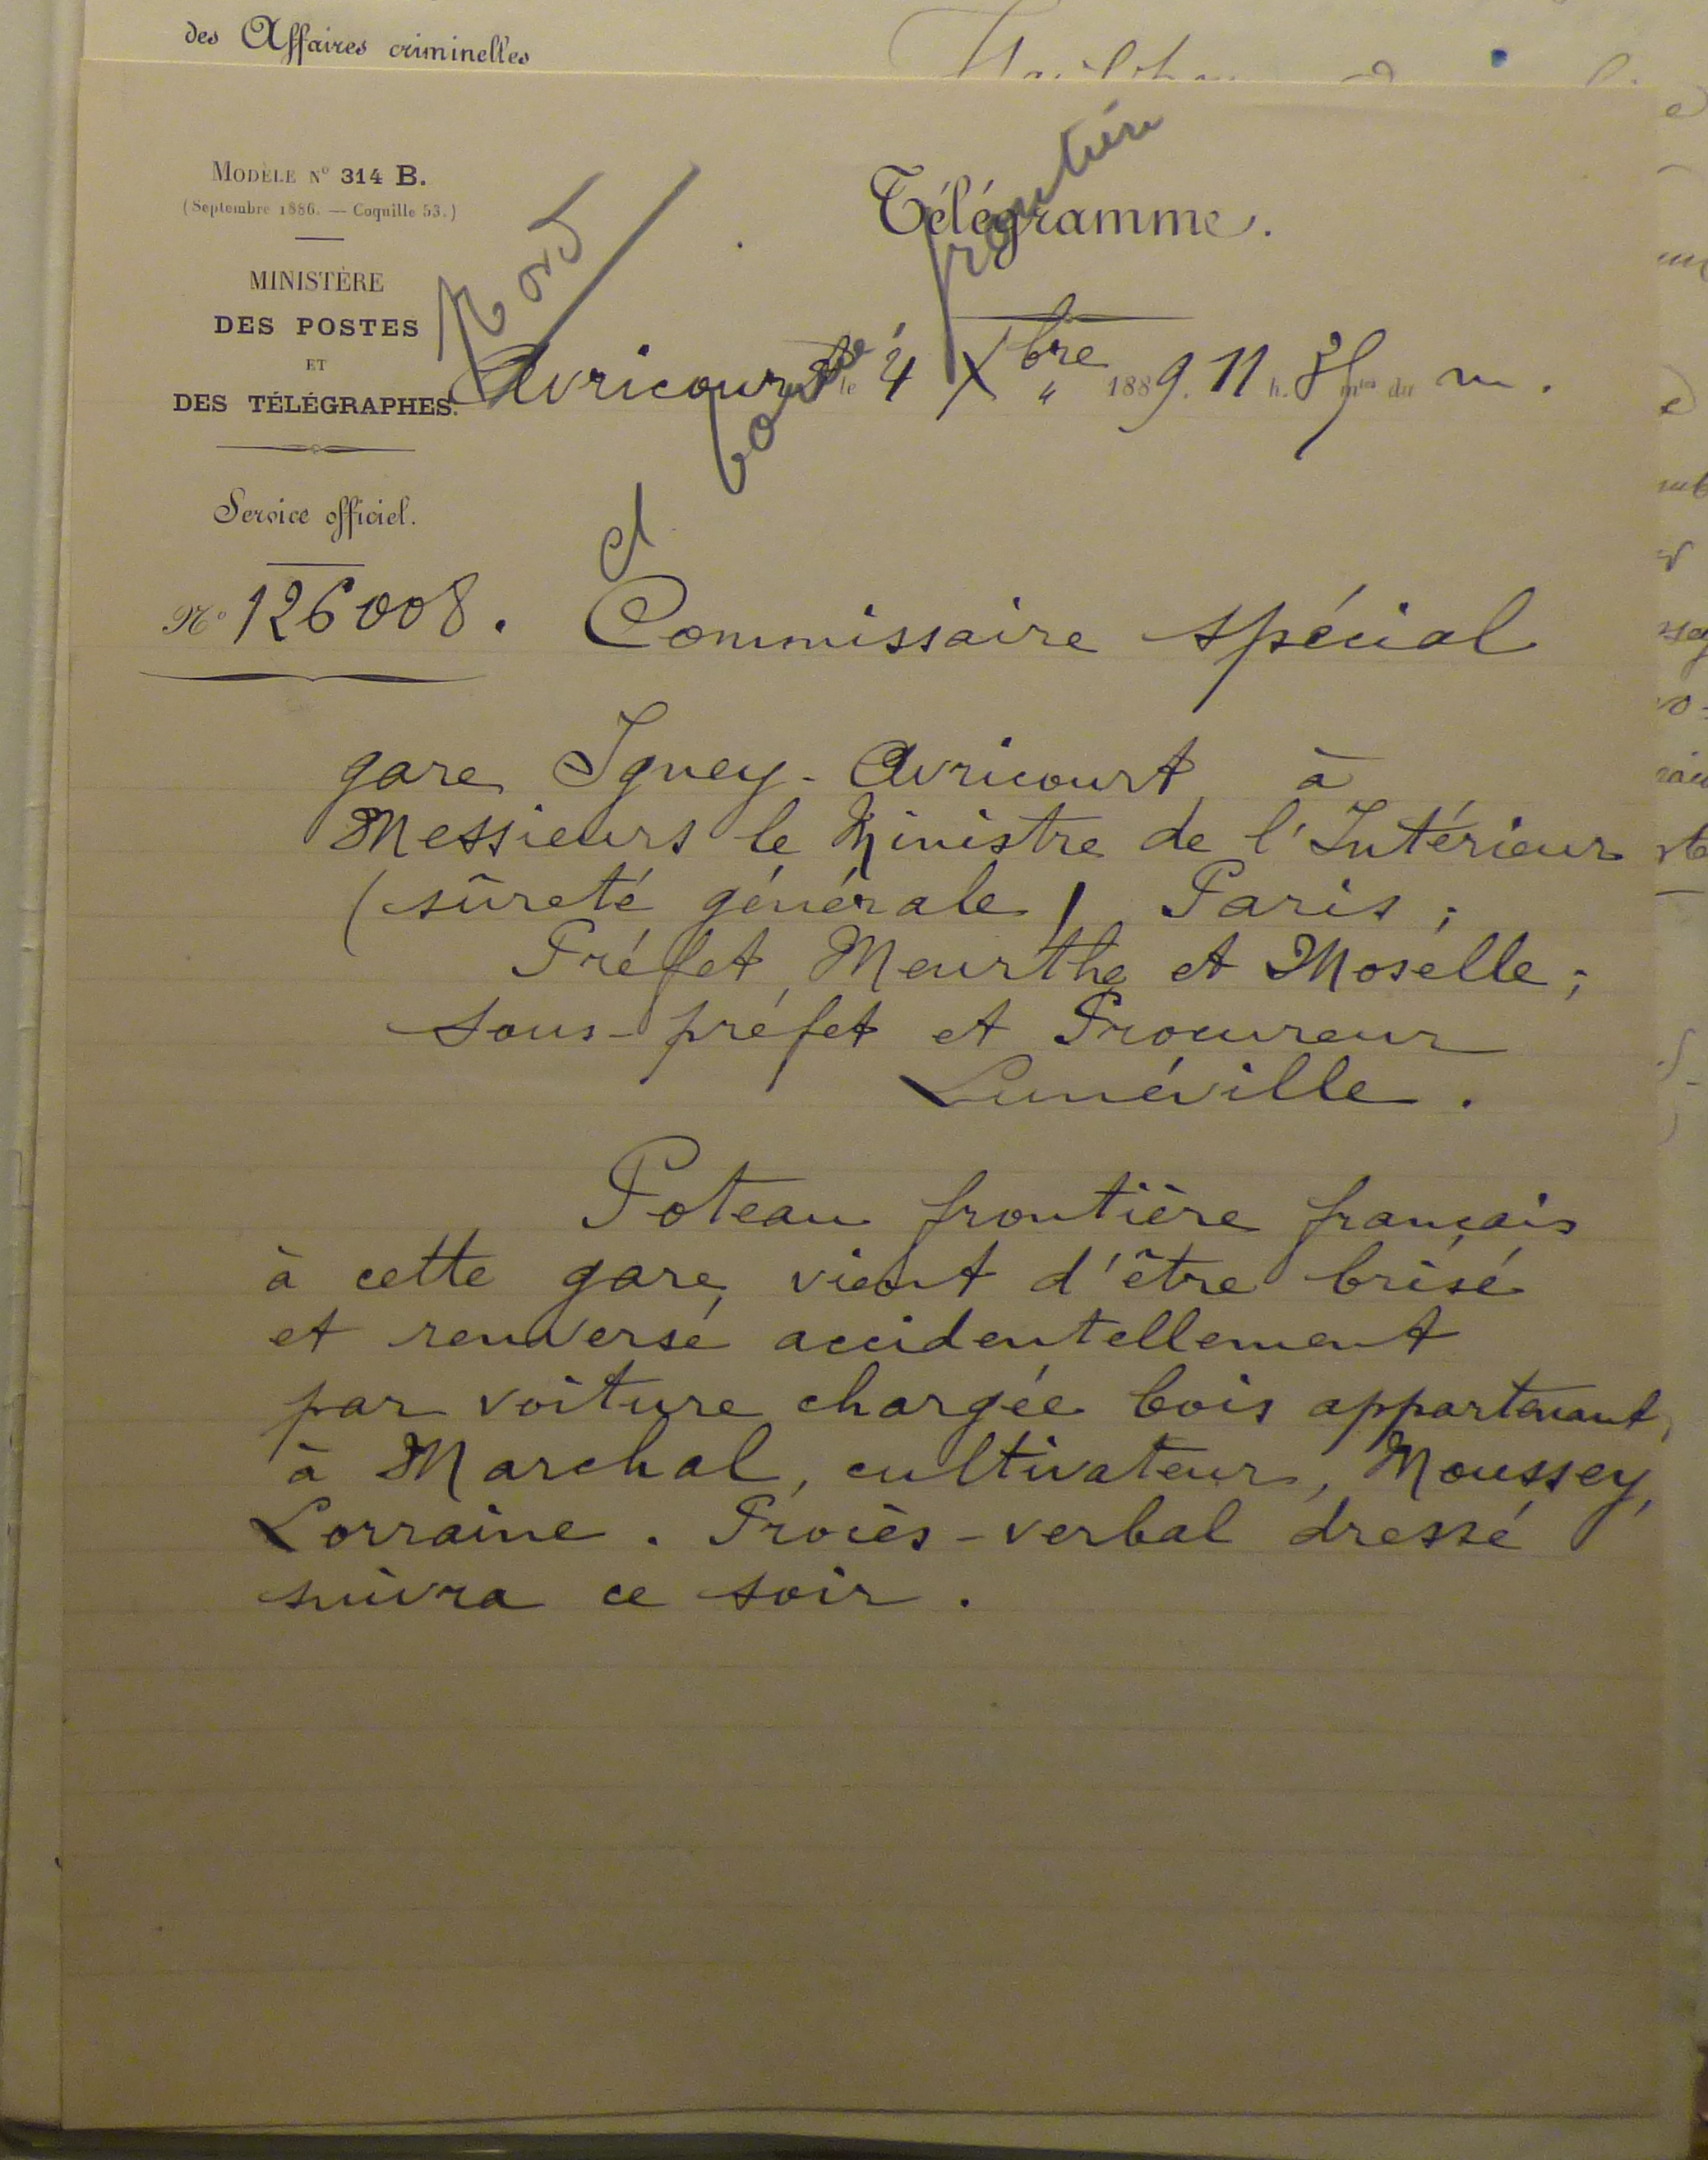 des Affaires criminelles
MODÈLE N° 314 B.
(Septembre 1886. — Coquille 53.)
MINISTÈRE
DES POSTES
ET
DES TÉLÉGRAPHES.
Service officiel.
N° 126008.
Nord
frontière
et
Télégramme.
Avricourt le 4 Xbre 1889. 11 h. mtes du m.
Commissaire spécial
gare Igney-Avricourt à
Messieurs le Ministre de l'Intérieur
(sûreté générale) Paris;
Préfet, Meurthe et Moselle;
sous-préfet et Procureur
Lunéville.
Poteau frontière français
à cette gare, vient d'être brisé
et renversé accidentellement
par voiture chargée bois appartenant,
à Marchal, cultivateur, Moussey,
Lorraine. Procès-verbal dressé
suivra ce soir.